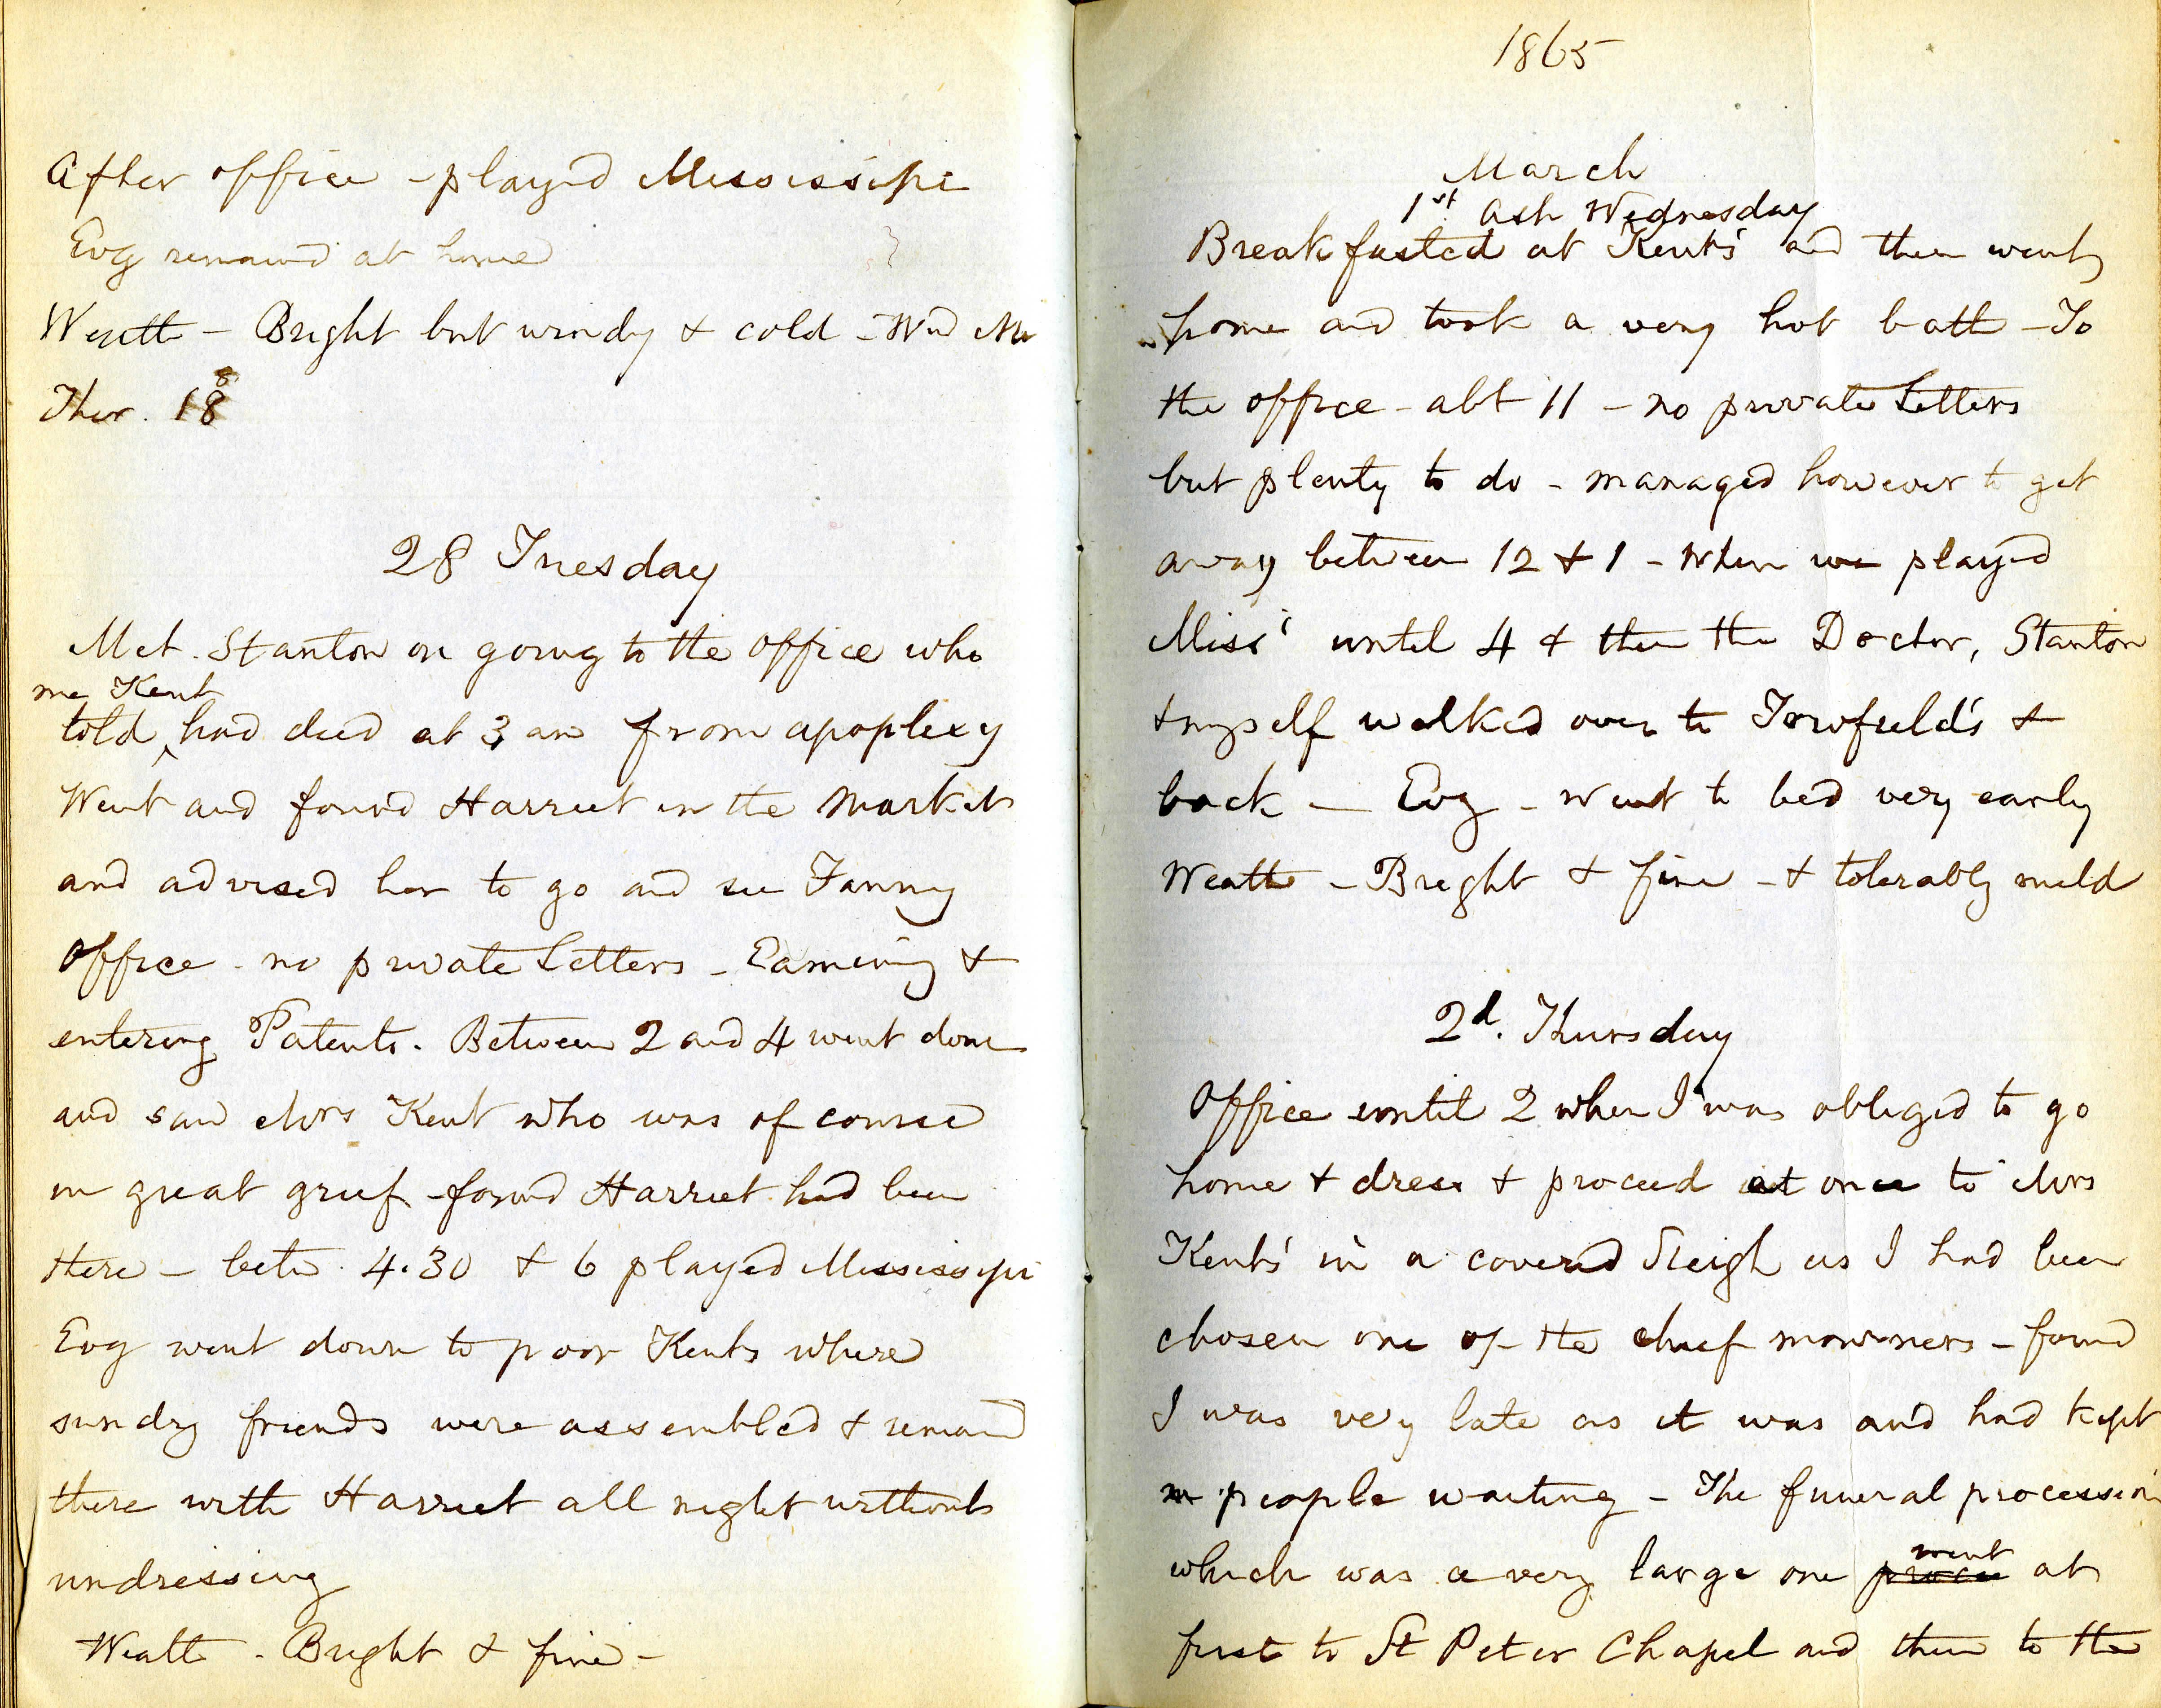 After office - played Mississipi
Evg remained at home
Weath - Bright but windy & cold - Wind NW
Ther. 18
28 Tuesday
Met Stanton on going to the office who
me Kent
told had died at 3 am from apoplexy
Went and found Harriet in the Market
and advised her to go and see Fanny
Office - no private Letters - Examing &
entering Patents. Between 2 and 4 went down
and saw Mrs Kent who was of course
in great grief - found Harriet had been
there - betn 4.30 & 6 played Mississipi
Evg went down to poor Kents where
sundry friends were assembled & remaind
there with Harriet all night without
undressing
Weath - Bright & fine -
1865
March
1st Ash Wednesday
Breakfasted at Kents' and then went
home and took a very hot bath - To
the office - abt 11 - no private Letters
but plenty to do - managed however to get
away between 12 & 1 - when we played
Miss' until 4 & then the Doctor, Stanton
& myself walked over to & 
back - Evg - went to bed very early
Weath - Bright & fine - & tolerably mild
2d. Thursday
Office until 2 when I was obliged to go
home & dress & proceed at once to Mrs
Kents' in a covered Sleigh as I had been
chosen one of the chief mourners - found
I was very late as it was and had kept
people waiting - The funeral procession
went
which was a very large one at
first to St Peter Chapel and then to the